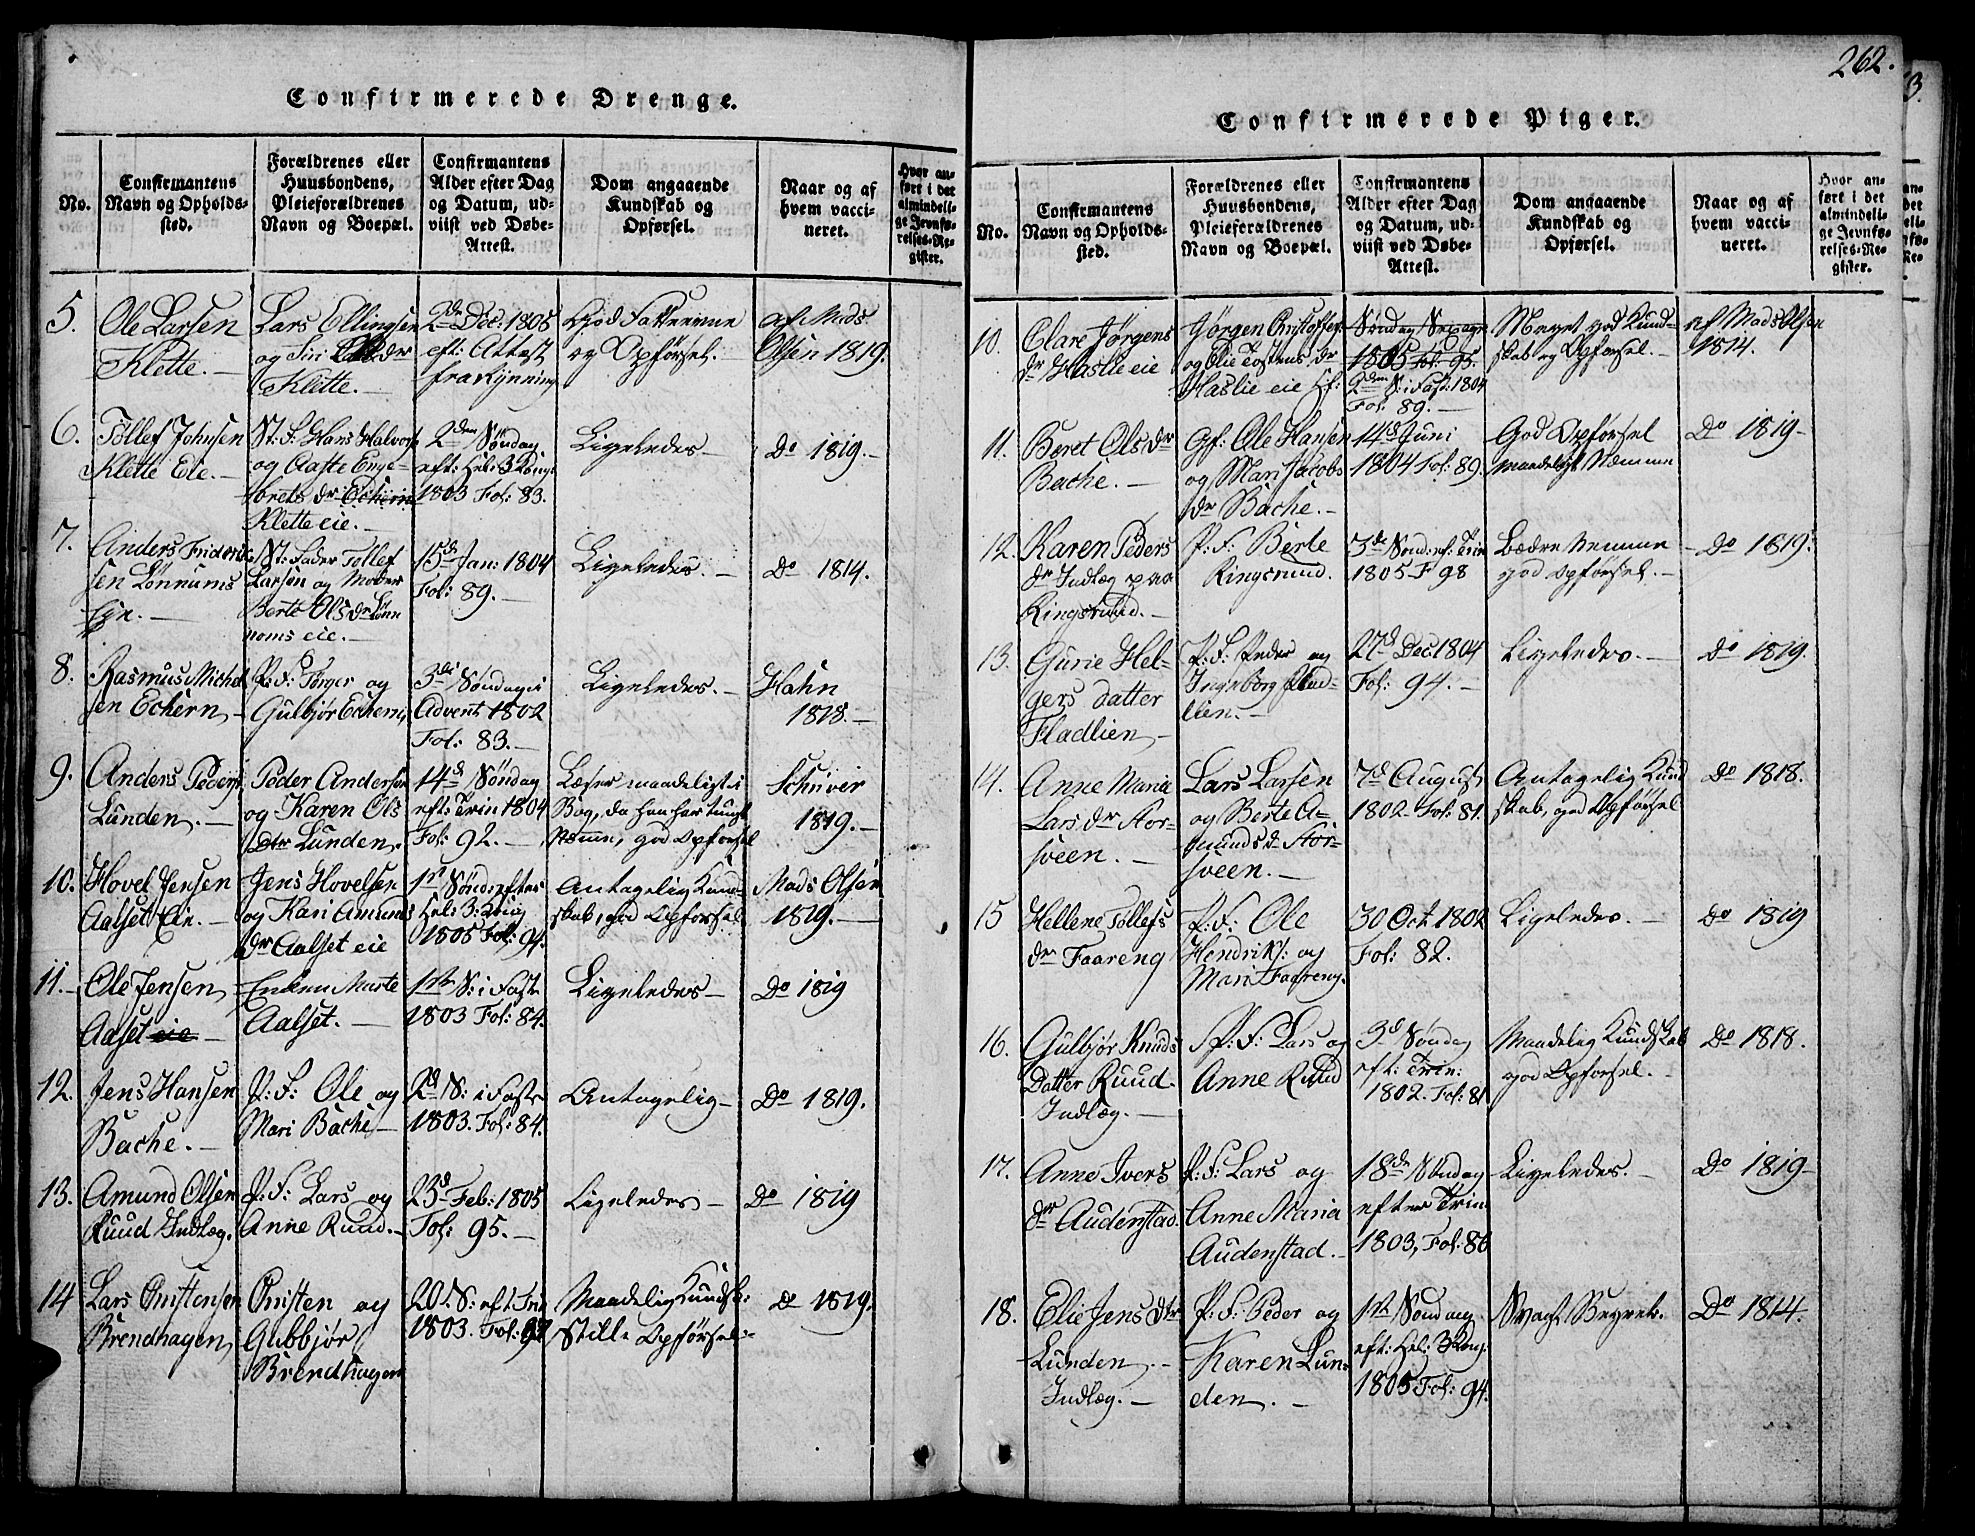 Confirmerede Drenge.
No.
Confirmantens
Navn og Opholds-
sted.
Forældrenes eller
Huusbondens,
Pleieforældrenes
Navn og Boepæl.
Confirmantens
Alder efter Dag
og Datum, ud-
viist ved Døbe-
Attest.
Dom angaaende
Kundskab og
Opførsel.
Naar og af
hvem vacci-
neret.
Hvor an-
ført i det
almindeli-
ge Jevnfø-
relses-Re-
gister.
5.
Ole Larsen
Klette. —
Lars Ellingsen
og Siri
Klette. —
2den Dec: 1805
eft: Attest
fra Rÿnning
God Fatteevne
og Opførsel. —
af Mads
Olsen 1819.
6.
Tollef Johnsen
Klette Eie. —
St: F: Hans Halvors
og Aaste Enge-
brets dr
Klette eie. —
2den Søndag
eft: Hel: 3 Kong
1803 Fol: 83.
Ligeledes —
Do 1819. —
7.
Anders Frideric
sen Lønnums
Eje. —
St: Fader Tollef
Larsen og Moder
Berte Olsdr Løn
noms eie. —
15d Jan: 1804
Fol: 89. —
Ligeledes. —
Do 1814.
8.
Rasmus Michel
sen Echern —
P: F: Torger og
Gulbjør Echern
3die Søndag i
Advent 1802
Fol: 83. —
Ligeledes. —
Hahn
1818. —
9.
Anders Peders
Lunden. —
Peder Andersen
og Karen Ols
Dtr Lunden.
14d Søndag
eft: Trin 1804
Fol: 92. —
Læser maadeligt i
Bog, da han har tungt
Nemme, god Opførsel
Schiver
1819. —
10.
Hovel Jensen
Aalset Eie. —
Jens Hovelsen
og Kari Amunds
dr Aalset eie
1st Sønd: efter
Hel: 3: Kong
1805 Fol: 94.
Antagelig Kund-
skab, god Opførsel
Mads Olsen
1819. —
11. —
Ole Jensen
Aalset eie —
Enken Marte
Aalset. —
1ste S: i Fast
1803 Fol: 84.
Ligeledes —
Do 1819
12.
Jens Hansen
Bache. —
P: F: Ole og
Mari Bache —
2d S: i Faste
1803. Fol: 84.
Antagelig —
Do 1819.
13.
Amund Olsen
Ruud Indlæg.
P: F: Lars og
Anne Ruud. —
23d Feb: 1805
Fol: 95. —
Ligeledes —
Do 1819
14
Lars Christensen
Brendhagen
Christen og
Gubbjør
Brendhagen
20d S: eft: Tri
1803. Fol: 87
Maadelig Kundsk:
Stille Opførsel. —
do 1819.
262.
Confirmerede Piger.
No.
Confirmantens
Navn og Opholds-
sted.
Forældrenes eller
Huusbondens,
Pleieforældrenes
Navn og Boepæl.
Confirmantens
Alder efter Dag
og Datum, ud-
viist ved Døbe-
Attest.
Dom angaaende
Kundskab og
Opførsel.
Naar og af
hvem vacci-
neret.
Hvor an-
ført i det
almindeli-
ge Jevnfø-
relses-Re-
gister.
10.
Clare Jørgens
dr Haslie eie
Jørgen Christoffers
og Elie Tostens dr
Haslie eie
Søndag Sexages
1805 Fol: 95.
2den S: i Fast: 1804
Fol: 89. —
Meget god Kund-
skab og Opførsel. —
af Mads Olsen
1814.
11.
Beret Ols dr
Bache. —
Gf: Ole Hansen
og Mari Jacobs
dr Bache. —
14d Juni
1804 Fol: 89.
God Opførsel
maadeligt Nemme
Do 1819 —
12.
Karen Peders
dr Indlæg paa
Ringsruud. —
P: F: Berte
Ringsruud.
3die Sønd: ef: Trin
1805 F 98
Bædre Nemme
god Opførsel. —
Do 1819.
13.
Gurie Hel-
gers datter
Fladlien —
P: F: Peder og
Ingeborg Flad-
lien. —
27d Dec: 1804
Fol: 94. —
Ligeledes. —
Do 1819.
14.
Anne Maria
Lars dr Stor-
sveen. —
Lars Larsen
og Berte A-
munds dr Stor-
sveen. —
7d August
1802 Fol: 81.
Antagelig Kund
skab, god Opførsel
Do 1818.
15
Hellene Tollefs
dr Faareng
P: F: Ole
Hendriks: og
Mari Faareng.
30 Oct 1802
Fol: 82.
Ligeledes. —
Do 1819
16.
Gulbjør Knuds
Datter Ruud
Indlæg. —
P: F: Lars og
Anne Ruud
3d Søndag
eft: Trin:
1802. Fol: 81
Maadelig Kundskab
god Opførsel. —
Do 1818.
17.
Anne Ivers
dr Audenstad.
P: F: Lars og
Anne Maria
Audenstad. —
18de Søndag
efter Trin
1803, Fol: 86
Ligeledes. —
Do 1819 —
18.
Elie Jens Dtr
Lunden. —
Indlæg. —
P: F: Peder og
Karen Lun-
den. —
1ste Søndag
eft: Hel: 3 Kong
1805 Fol: 94.
Svagt Begreb.
Do 1814.